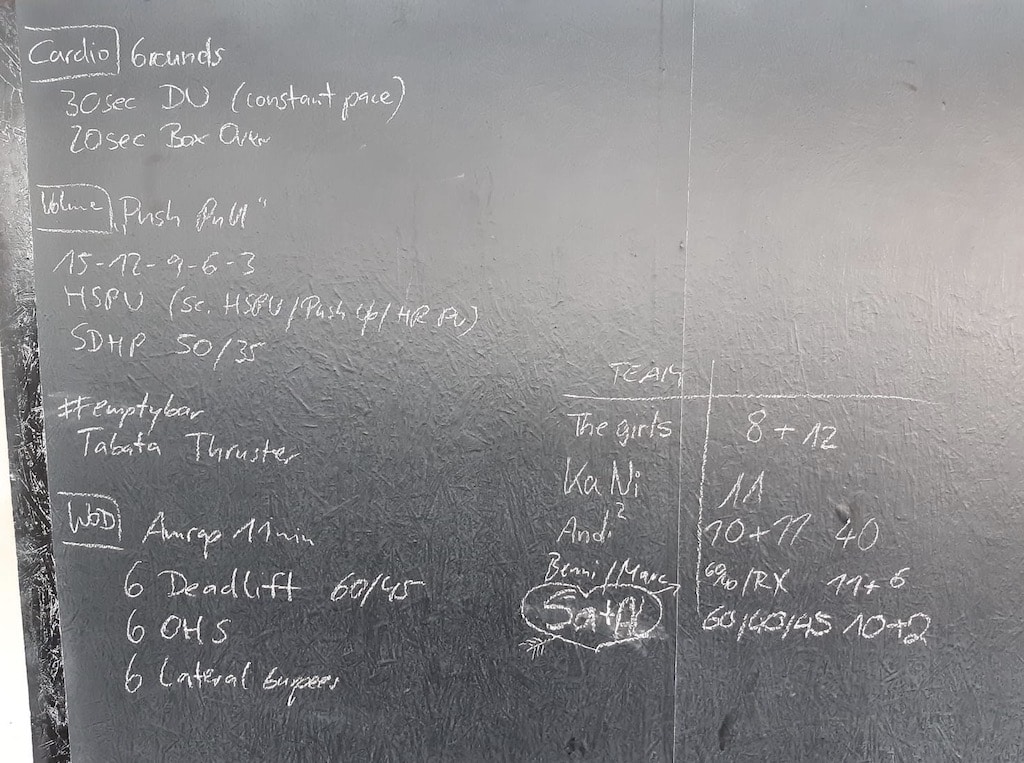 Cardio 6 rounds
30sec DU (constant pace)
20sec Box Over
Volume „Push Pull“
15-12-9-6-3
HSPU (sc. HSPU/Push Up/HR PU)
SDHP 50/35
#emptybar
Tabata Thruster
WOD Amrap 11min
6 Deadlift 60/45
6 OHS
6 Lateral burpees
TEAM
The girls 8+12
KaNi 11
Andi² 10+11 40
Benni/Marc 60/40/RX 11+6
Sa+A 60/40/45 10+2